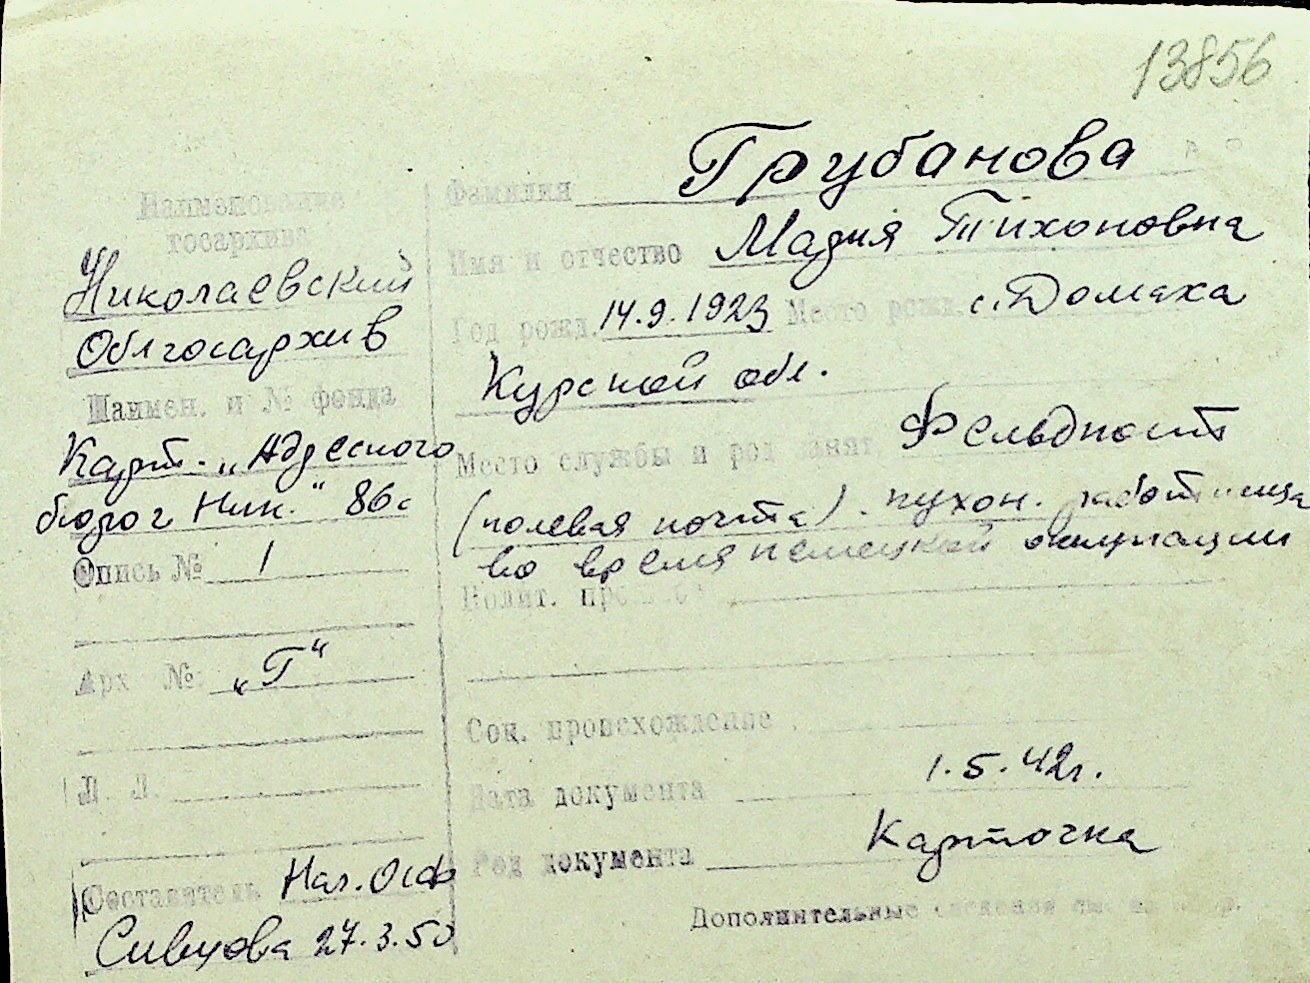 13856
Наименование
госархива
Николаевский
Облгосархив
Наимен. и № фонда
Карт. „Адресного
бюро г Ник." 86с
Опись № 1
Арх № „Г"
Л. Л.
Составитель Нач. Осф
Сивцова 27.3.50
Фамилия Грубанова
Имя и отчество Мария Тихоновна
Год рожд. 14.9.1923 Место рожд. с. Домаха
Курской обл.
Место службы и род занят. Фельдпост
(полевая почта). кухон. работница
во время немецкой оккупации
Полит.
Соц. происхождение
Дата документа 1.5.42г.
Род документа Карточка
Дополнительные сведения